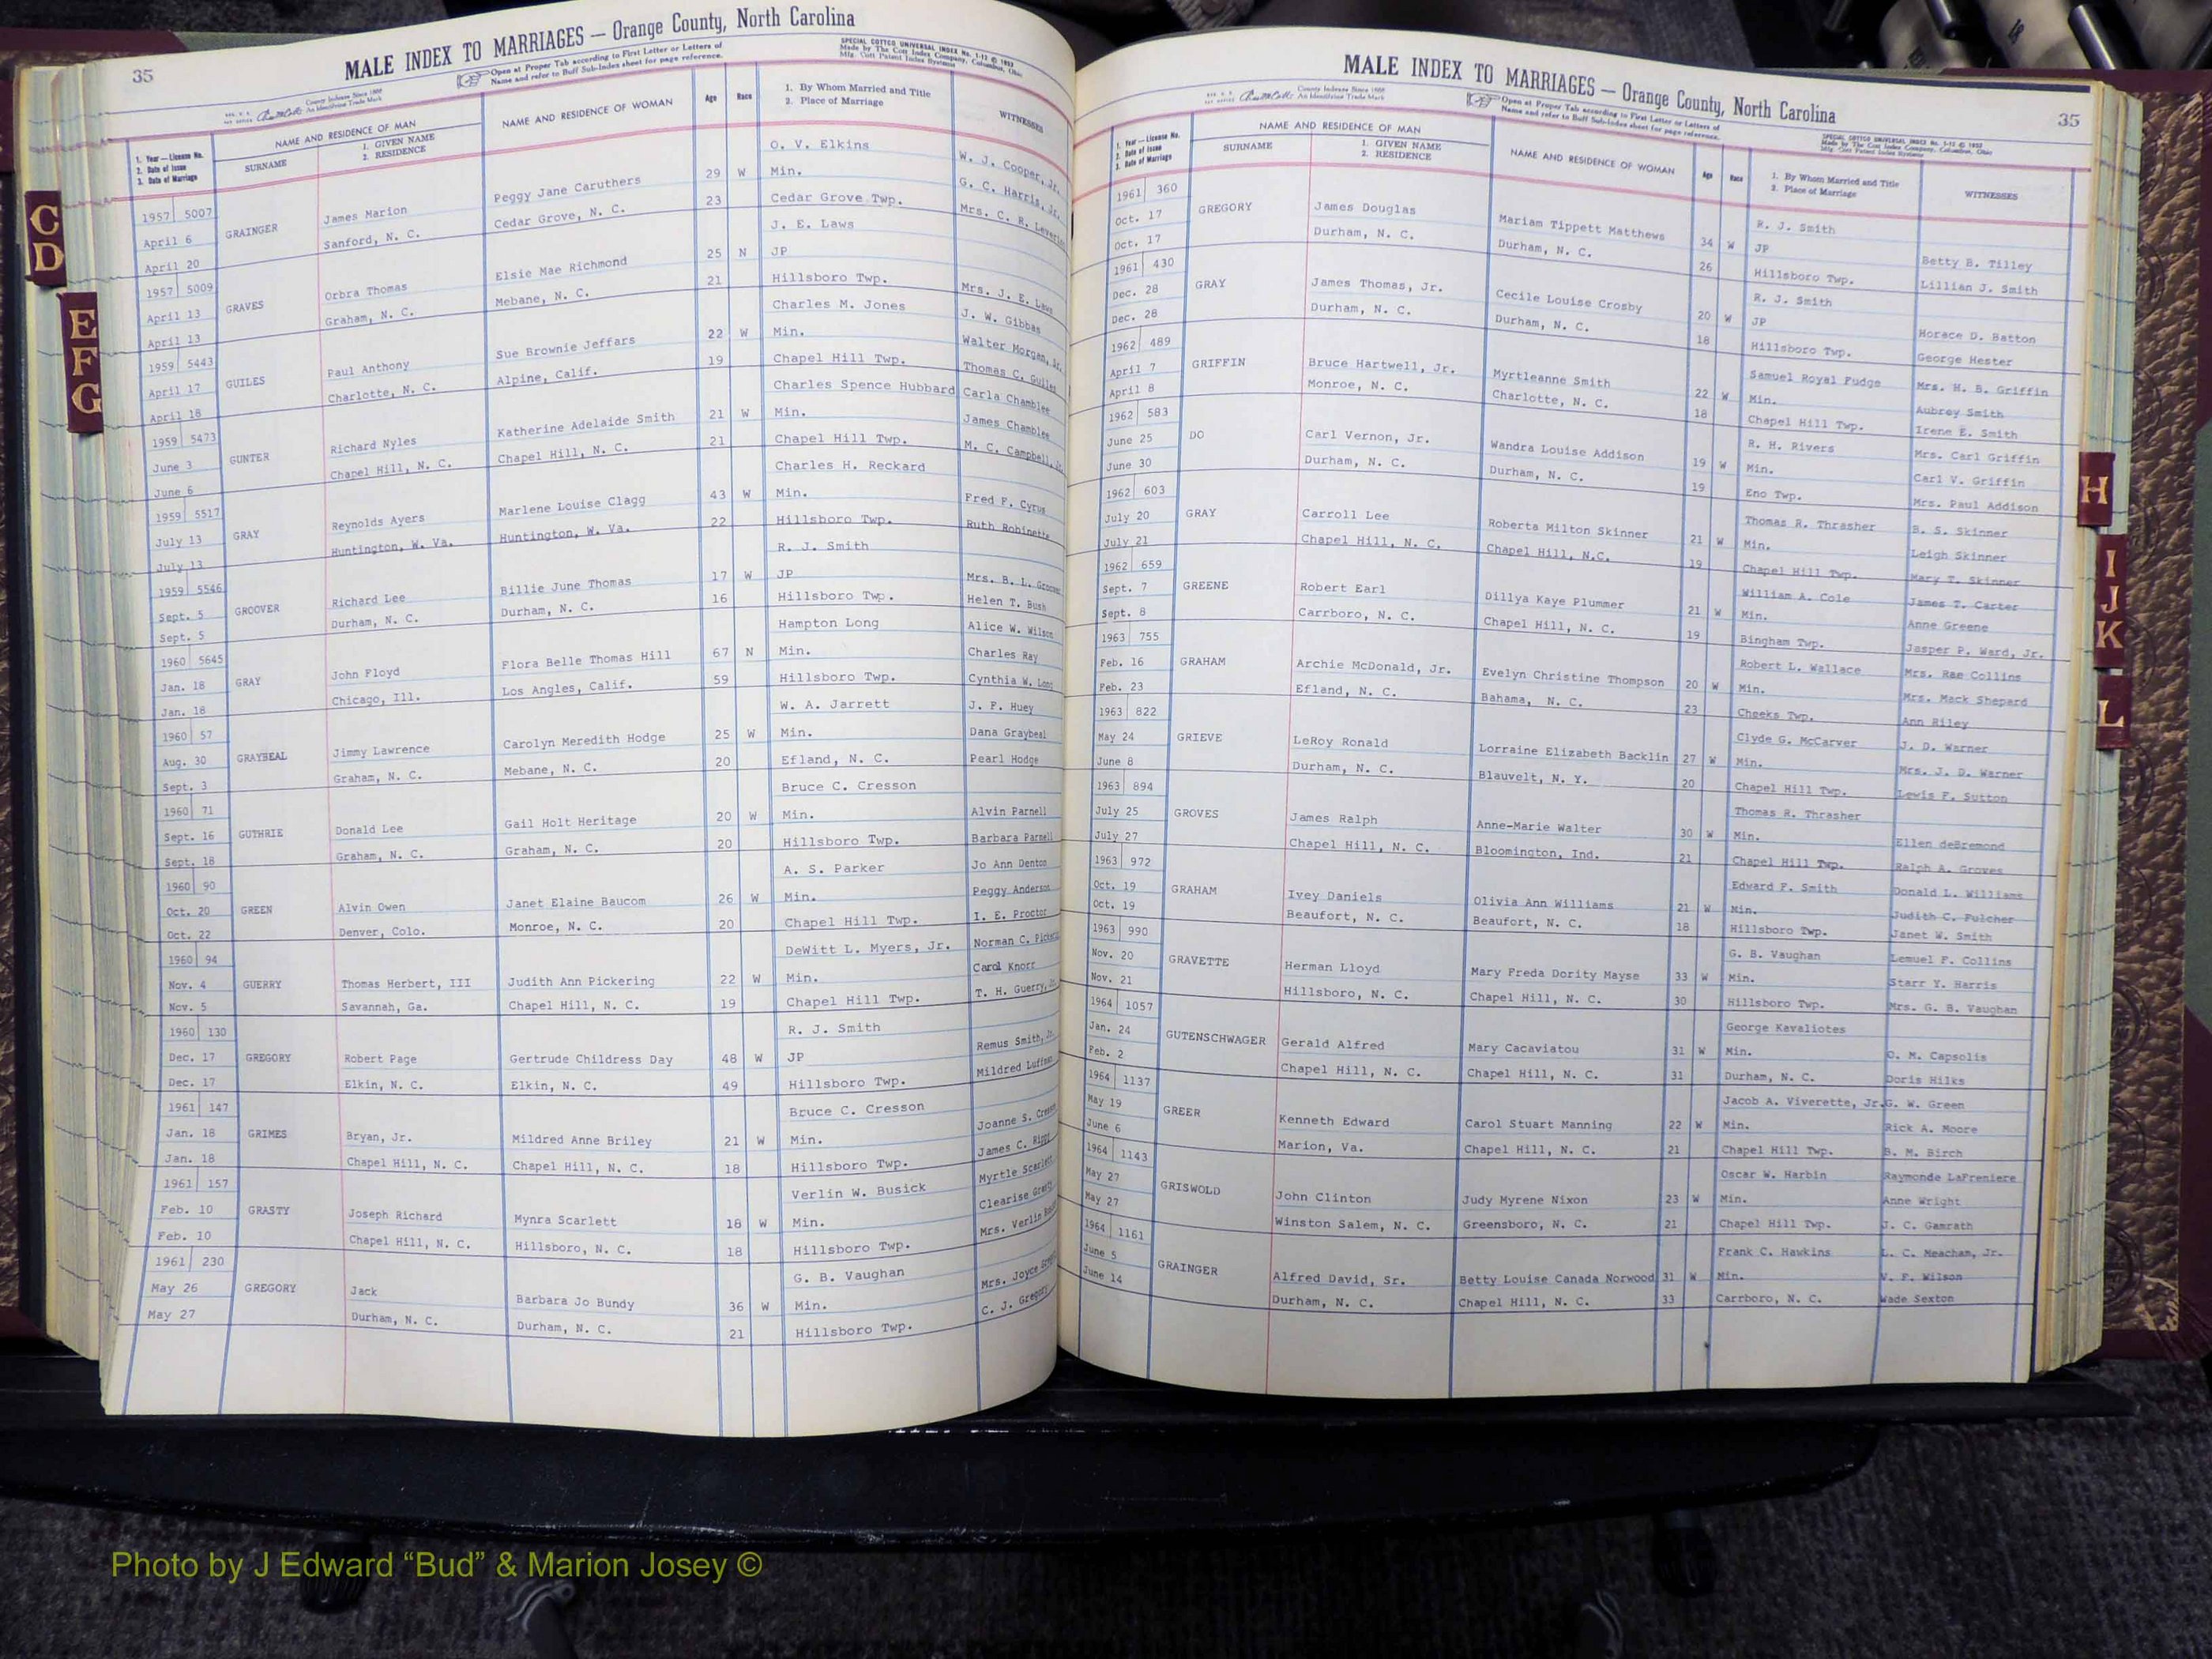 35
MALE INDEX TO MARRIAGES — Orange County, North Carolina
Open at Proper Tab according to First Letter or Letters of
Name and refer to Buff Sub-Index sheet for page reference.
SPECIAL COTTCO UNIVERSAL INDEX No. 1-12 © 1952
Made by The Cott Index Company, Columbus, Ohio
Mfg. Cott Patent Index Systems
County Indexes Since 1888
An Identifying Trade Mark
1. Year — License No.
2. Date of Issue
3. Date of Marriage
NAME AND RESIDENCE OF MAN
SURNAME
1. GIVEN NAME
2. RESIDENCE
NAME AND RESIDENCE OF WOMAN
Age
Race
1. By Whom Married and Title
2. Place of Marriage
WITNESSES
O. V. Elkins W. J. Cooper, Jr.
1957 5007 James Marion Peggy Jane Caruthers 29 W Min. G. C. Harris, Jr.
April 6 GRAINGER Sanford, N. C. Cedar Grove, N. C. 23 Cedar Grove Twp. Mrs. C. R.
April 20 J. E. Laws
1957 5009 Orbra Thomas Elsie Mae Richmond 25 N JP
April 13 GRAVES Graham, N. C. Mebane, N. C. 21 Hillsboro Twp. Mrs. J. E. Laws
April 13 Charles M. Jones J. W. Gibbas
1959 5443 Paul Anthony Sue Brownie Jeffars 22 W Min. Walter Morgan, Jr.
April 17 GUILES Charlotte, N. C. Alpine, Calif. 19 Chapel Hill Twp. Thomas C. Guiles
April 18 Charles Spence Hubbard Carla Chamblee
1959 5473 Richard Nyles Katherine Adelaide Smith 21 W Min. James Chamblee
June 3 GUNTER Chapel Hill, N. C. Chapel Hill, N. C. 21 Chapel Hill Twp. M. C. Campbell,
June 6 Charles H. Reckard
1959 5517 Reynolds Ayers Marlene Louise Clagg 43 W Min. Fred F. Cyrus
July 13 GRAY Huntington, W. Va. Huntington, W. Va. 22 Hillsboro Twp. Ruth Robinette
July 13 R. J. Smith
1959 5546 Richard Lee Billie June Thomas 17 W JP Mrs. B. L.
Sept. 5 GROOVER Durham, N. C. Durham, N. C. 16 Hillsboro Twp. Helen T. Bush
Sept. 5 Hampton Long Alice W. Wilson
1960 5645 John Floyd Flora Belle Thomas Hill 67 N Min. Charles Ray
Jan. 18 GRAY Chicago, Ill. Los Angles, Calif. 59 Hillsboro Twp. Cynthia W. Long
Jan. 18 W. A. Jarrett J. F. Huey
1960 57 Jimmy Lawrence Carolyn Meredith Hodge 25 W Min. Dana Graybeal
Aug. 30 GRAYBEAL Graham, N. C. Mebane, N. C. 20 Efland, N. C. Pearl Hodge
Sept. 3 Bruce C. Cresson
1960 71 Donald Lee Gail Holt Heritage 20 W Min. Alvin Parnell
Sept. 16 GUTHRIE Graham, N. C. Graham, N. C. 20 Hillsboro Twp. Barbara Parnell
Sept. 18 A. S. Parker Jo Ann Denton
1960 90 Alvin Owen Janet Elaine Baucom 26 W Min. Peggy Anderson
Oct. 20 GREEN Denver, Colo. Monroe, N. C. 20 Chapel Hill Twp. I. E. Proctor
Oct. 22 DeWitt L. Myers, Jr. Norman C.
1960 94 Thomas Herbert, III Judith Ann Pickering 22 W Min. Carol Knorr
Nov. 4 GUERRY Savannah, Ga. Chapel Hill, N. C. 19 Chapel Hill Twp. T. H. Guerry,
Nov. 5 R. J. Smith
1960 130 Robert Page Gertrude Childress Day 48 W JP Remus Smith,
Dec. 17 GREGORY Elkin, N. C. Elkin, N. C. 49 Hillsboro Twp. Mildred
Dec. 17 Bruce C. Cresson
1961 147 Bryan, Jr. Mildred Anne Briley 21 W Min. Joanne S.
Jan. 18 GRIMES Chapel Hill, N. C. Chapel Hill, N. C. 18 Hillsboro Twp. James C.
Jan. 18 Verlin W. Busick Myrtle Scarlett
1961 157 Joseph Richard Mynra Scarlett 18 W Min. Clearise
Feb. 10 GRASTY Chapel Hill, N. C. Hillsboro, N. C. 18 Hillsboro Twp. Mrs. Verlin
Feb. 10 G. B. Vaughan
1961 230 Jack Barbara Jo Bundy 36 W Min. Mrs. Joyce
May 26 GREGORY Durham, N. C. Durham, N. C. 21 Hillsboro Twp. C. J. Gregory
May 27
MALE INDEX TO MARRIAGES — Orange County, North Carolina
35
County Indexes Since 1888
An Identifying Trade Mark
Open at Proper Tab according to First Letter or Letters of
Name and refer to Buff Sub-Index sheet for page reference.
SPECIAL COTTCO UNIVERSAL INDEX No. 1-12 © 1952
Made by The Cott Index Company, Columbus, Ohio
Mfg. Cott Patent Index Systems
1. Year — License No.
2. Date of Issue
3. Date of Marriage
NAME AND RESIDENCE OF MAN
SURNAME
1. GIVEN NAME
2. RESIDENCE
NAME AND RESIDENCE OF WOMAN
Age
Race
1. By Whom Married and Title
2. Place of Marriage
WITNESSES
1961 360 R. J. Smith
Oct. 17 GREGORY James Douglas Mariam Tippett Matthews 34 W JP Betty B. Tilley
Oct. 17 Durham, N. C. Durham, N. C. 26 Hillsboro Twp. Lillian J. Smith
1961 430 R. J. Smith
Dec. 28 GRAY James Thomas, Jr. Cecile Louise Crosby 20 W JP Horace D. Batton
Dec. 28 Durham, N. C. Durham, N. C. 18 Hillsboro Twp. George Hester
1962 489 Samuel Royal Fudge Mrs. H. B. Griffin
April 7 GRIFFIN Bruce Hartwell, Jr. Myrtleanne Smith 22 W Min. Aubrey Smith
April 8 Monroe, N. C. Charlotte, N. C. 18 Chapel Hill Twp. Irene E. Smith
1962 583 R. H. Rivers Mrs. Carl Griffin
June 25 DO Carl Vernon, Jr. Wandra Louise Addison 19 W Min. Carl V. Griffin
June 30 Durham, N. C. Durham, N. C. 19 Eno Twp. Mrs. Paul Addison
1962 603 Thomas R. Thrasher B. S. Skinner
July 20 GRAY Carroll Lee Roberta Milton Skinner 21 W Min. Leigh Skinner
July 21 Chapel Hill, N. C. Chapel Hill, N.C. 19 Chapel Hill Twp. Mary T. Skinner
1962 659 William A. Cole James T. Carter
Sept. 7 GREENE Robert Earl Dillya Kaye Plummer 21 W Min. Anne Greene
Sept. 8 Carrboro, N. C. Chapel Hill, N. C. 19 Bingham Twp. Jasper P. Ward, Jr.
1963 755 Robert L. Wallace Mrs. Rae Collins
Feb. 16 GRAHAM Archie McDonald, Jr. Evelyn Christine Thompson 20 W Min. Mrs. Mack Shepard
Feb. 23 Efland, N. C. Bahama, N. C. 23 Cheeks Twp. Ann Riley
1963 822 Clyde G. McCarver J. D. Warner
May 24 GRIEVE LeRoy Ronald Lorraine Elizabeth Backlin 27 W Min. Mrs. J. D. Warner
June 8 Durham, N. C. Blauvelt, N. Y. 20 Chapel Hill Twp. Lewis F. Sutton
1963 894 Thomas R. Thrasher
July 25 GROVES James Ralph Anne-Marie Walter 30 W Min. Ellen deBremond
July 27 Chapel Hill, N. C. Bloomington, Ind. 21 Chapel Hill Twp. Ralph A. Groves
1963 972 Edward F. Smith Donald L. Williams
Oct. 19 GRAHAM Ivey Daniels Olivia Ann Williams 21 W Min. Judith C. Fulcher
Oct. 19 Beaufort, N. C. Beaufort, N. C. 18 Hillsboro Twp. Janet W. Smith
1963 990 G. B. Vaughan Lemuel F. Collins
Nov. 20 GRAVETTE Herman Lloyd Mary Freda Dority Mayse 33 W Min. Starr Y. Harris
Nov. 21 Hillsboro, N. C. Chapel Hill, N. C. 30 Hillsboro Twp. Mrs. G. B. Vaughan
1964 1057 George Kavaliotes
Jan. 24 GUTENSCHWAGER Gerald Alfred Mary Cacaviatou 31 W Min. O. M. Capsolis
Feb. 2 Chapel Hill, N. C. Chapel Hill, N. C. 31 Durham, N. C. Doris Hilks
1964 1137 Jacob A. Viverette, Jr. G. W. Green
May 19 GREER Kenneth Edward Carol Stuart Manning 22 W Min. Rick A. Moore
June 6 Marion, Va. Chapel Hill, N. C. 21 Chapel Hill Twp. B. M. Birch
1964 1143 Oscar W. Harbin Raymonde LaFreniere
May 27 GRISWOLD John Clinton Judy Myrene Nixon 23 W Min. Anne Wright
May 27 Winston Salem, N. C. Greensboro, N. C. 21 Chapel Hill Twp. J. C. Gamrath
1964 1161 Frank C. Hawkins L. C. Meacham, Jr.
June 5 GRAINGER Alfred David, Sr. Betty Louise Canada Norwood 31 W Min. V. F. Wilson
June 14 Durham, N. C. Chapel Hill, N. C. 33 Carrboro, N. C. Wade Sexton
C
D
E
F
G
H
I
J
K
L
Photo by J Edward “Bud” & Marion Josey ©